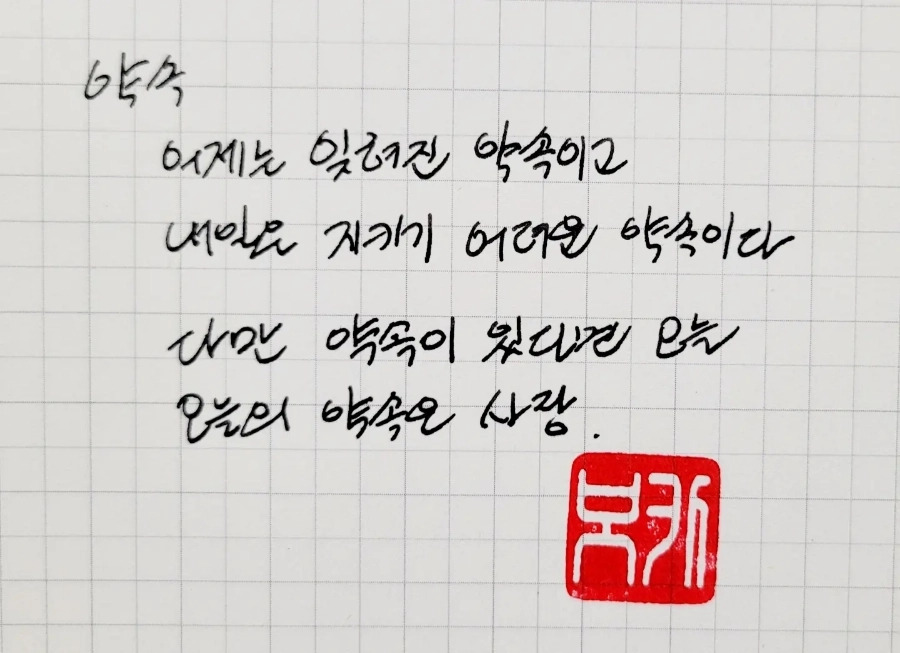 약속
어제는 잊혀진 약속이고
내일은 지키기 어려운 약속이다
다만 약속이 있다면 오늘
오늘의 약속은 사랑.
보카